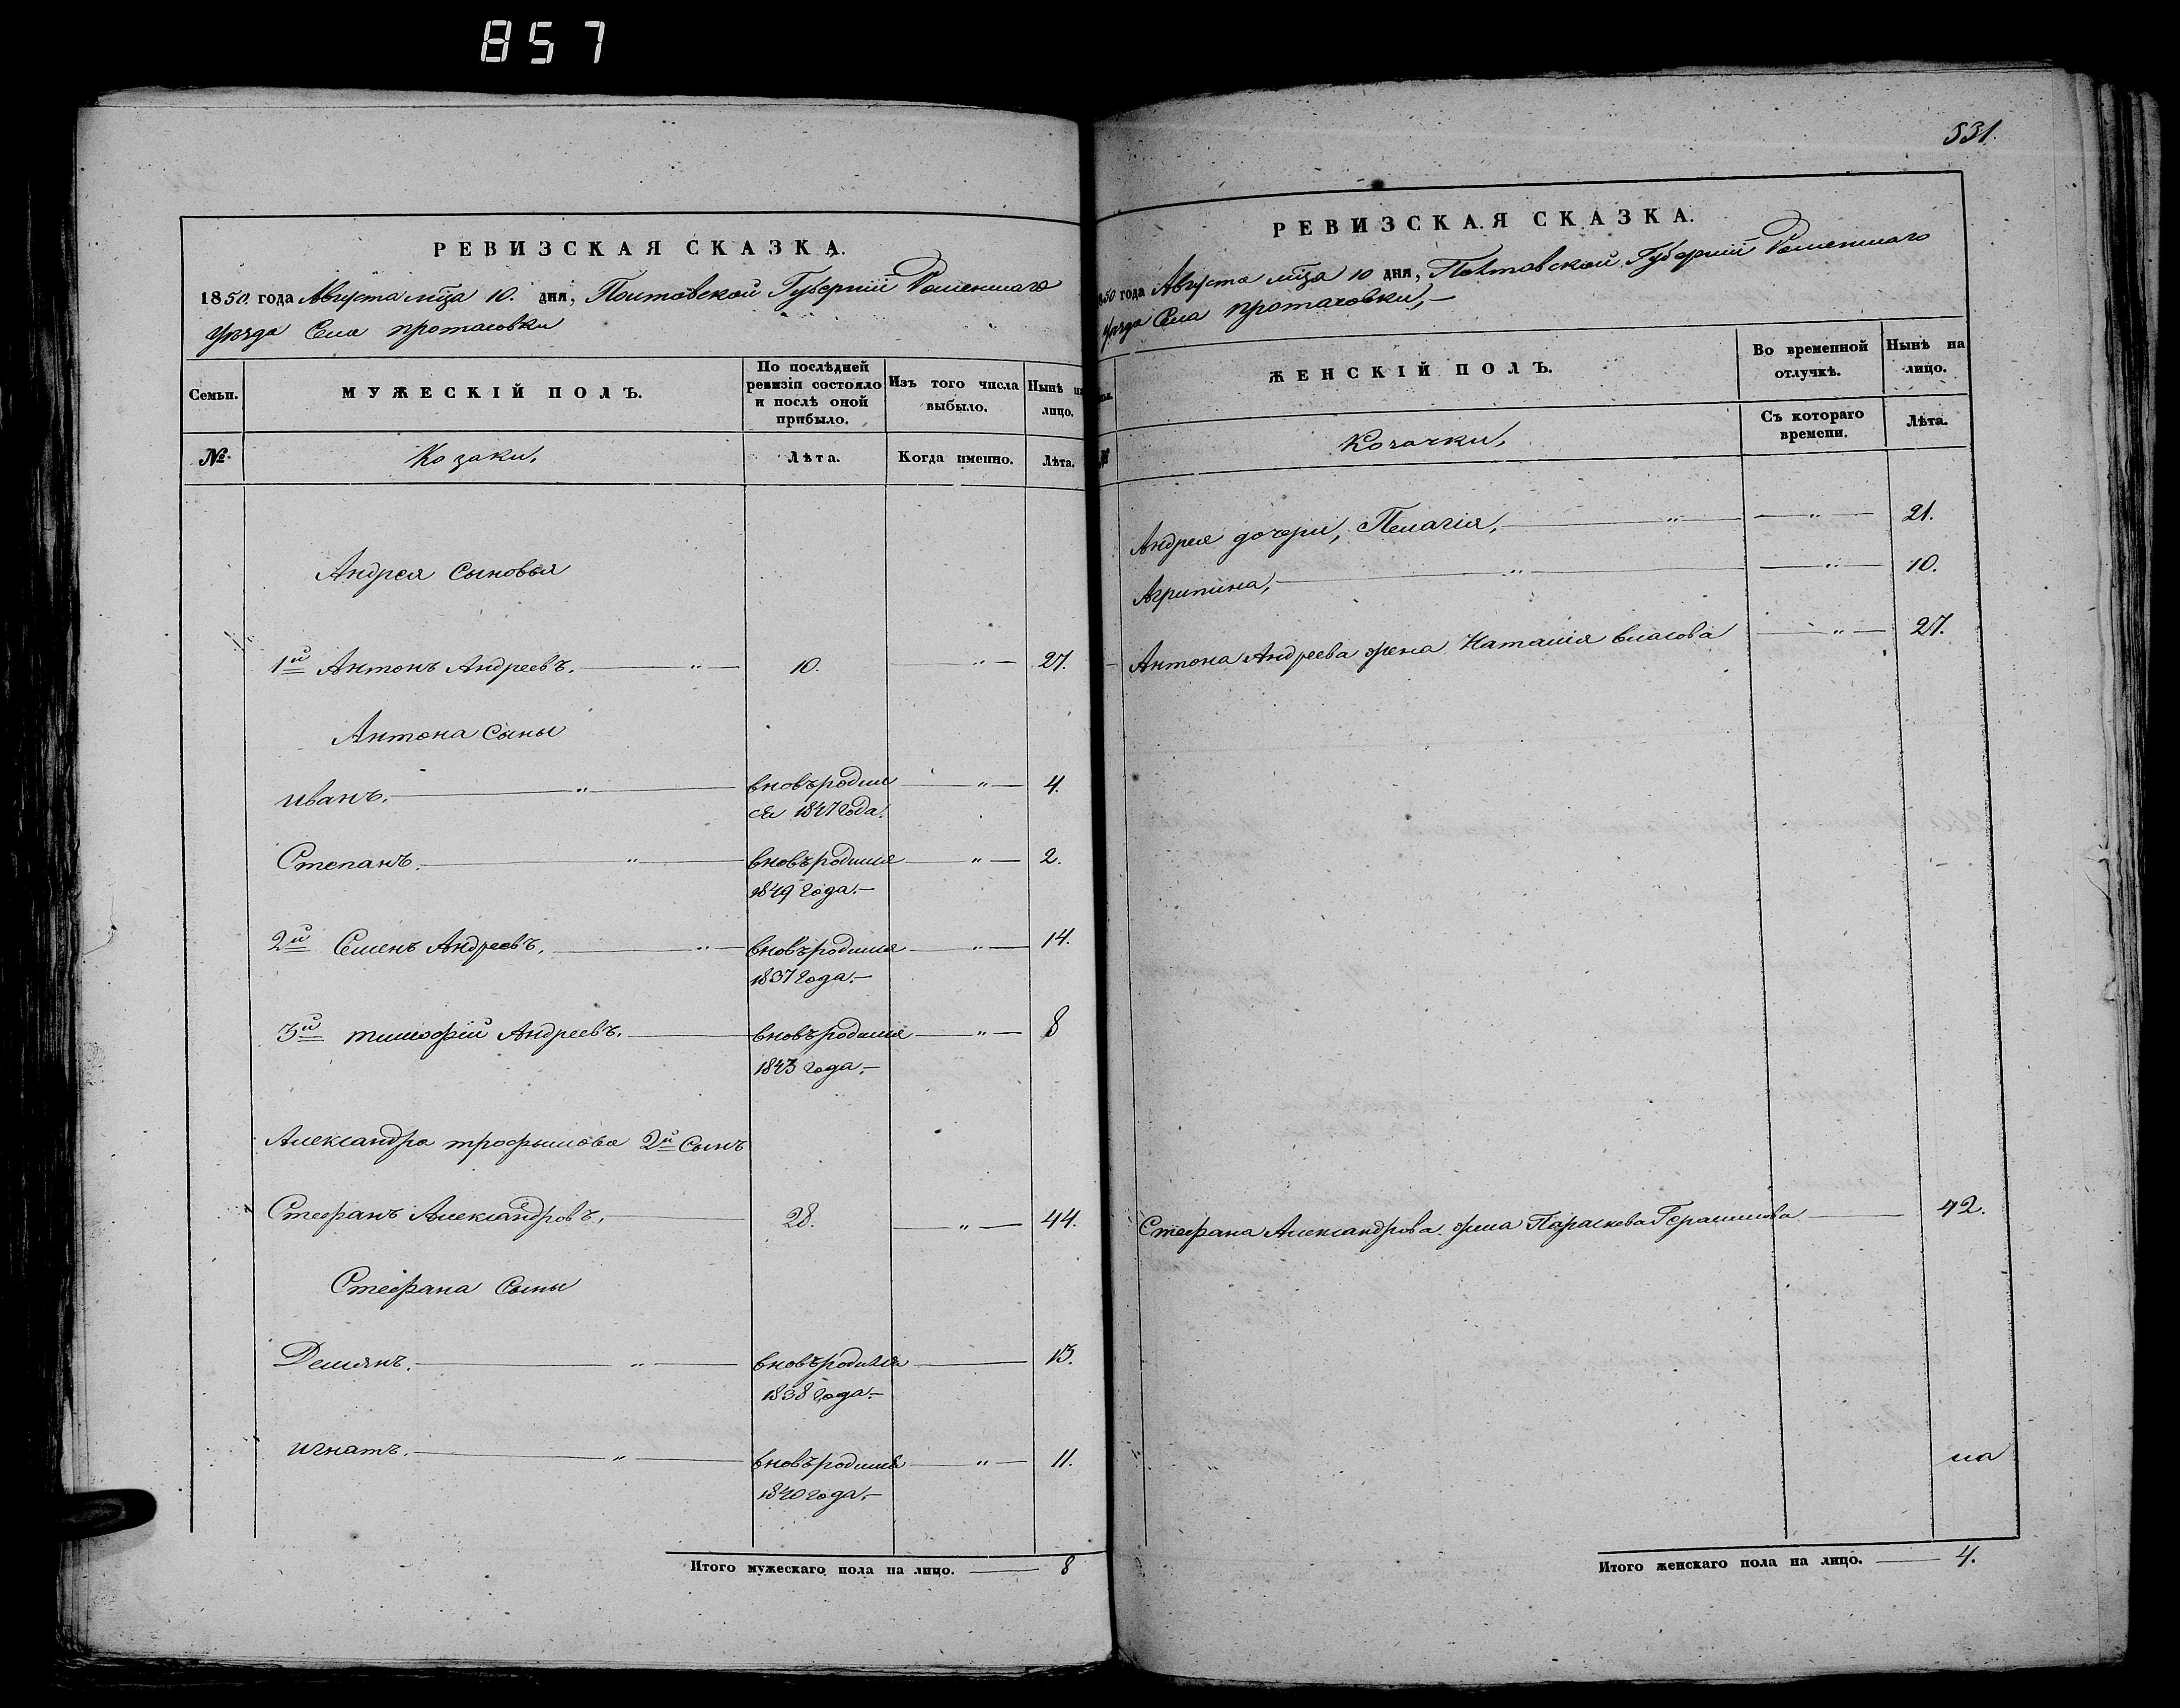 857
РЕВИЗСКАЯ СКАЗКА.
1850. года Августа мца 10. дня, Полтавской Губерніи Роменшаго
уѣзда Села протасовки
Семьи.
МУЖЕСКІЙ ПОЛЪ.
По послѣдней ревизіи состояло и послѣ оной прибыло.
Изъ того числа выбыло.
Нынѣ на лицо.
№
Козаки.
Лѣта.
Когда именно.
Лѣта.
Андрея Сыновья
1й Антонъ Андреевъ. — " — 10. " — 27.
Антона Сыны
иванъ. — " — вновьродил — " — 4.
ся 1847 года.
Степанъ. — " — вновьродился — " — 2.
1849 года. —
2й Семенъ Андреевъ. — " — вновьродился — " — 14.
1837 года. —
3й тимофій Андреевъ. — вновьродился — " — 8
1843 года. —
Александра трофымова 2й Сынъ
Стефанъ Александровъ. — 28. — " — 44.
Стефана Сыны
Демянъ. — " — вновьродился — 13.
1838 года. —
игнатъ. — " — вновьродился — " — 11.
1840 года. —
Итого мужескаго пола на лицо. — 8
531.
РЕВИЗСКАЯ СКАЗКА.
1850 года Августа мца 10 дня, Полтавской Губерніи Роменшаго
уѣзда Села протасовки, —
ЖЕНСКІЙ ПОЛЪ.
Во временной отлучкѣ.
Нынѣ на лицо.
№
Козачки,
Съ котораго времени.
Лѣта.
Андрея дочери, Пелагія, — " — — " — 21.
Агрипина, — " — — " — 10.
Антона Андреева жена Наталія власова — " — 27.
Стефана Александрова жена Параскева Герасимова — 42.
Итого женскаго пола на лицо. — 4.